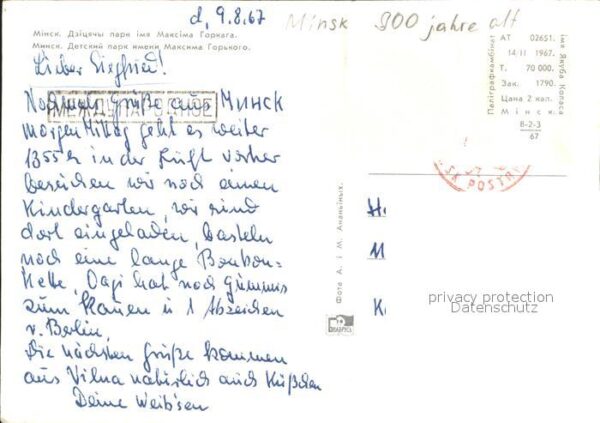 d, 9.8.67
Minsk 900 jahre alt
Мінск. Дзіцячы парк імя Максіма Горкага.
Минск. Детский парк имени Максима Горького.
Lieber Siegfried!
Nochmals Grüße aus МИНСК
МЕЖДУНАРОДНОЕ
morgen Mittag geht es weiter
1355 in der Luft vorher
besuchen wir noch einen
Kindergarten, wir sind
dort eingeladen, basteln
noch eine lange Bonbon-
Kette, Dagi hat noch Gummis
zum Kauen u 1 Abzeichen
v. Berlin,
Die nächsten Grüße kommen
aus Vilna natürlich auch Küßchen
Deine Weib'sen
Фота А. і М. Ананьіных.
БЕЛАРУСЬ
АТ 02651.
14/II 1967.
Т. 70 000.
Зак. 1790.
Цана 2 кап.
Мінск.
8-2-3
67
Паліграфкамбінат
імя Якуба Коласа
POSTA
H
M
K
privacy protection
Datenschutz